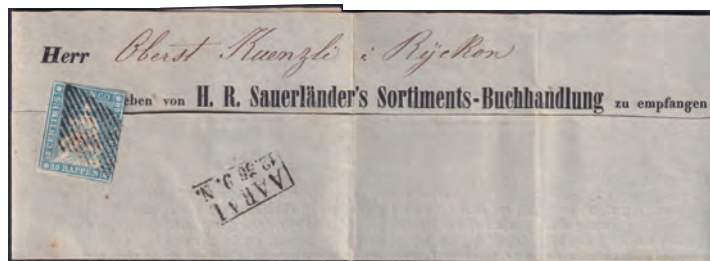 Herr Oberst Kuenzli i Ryeken
eben von H. R. Sauerländer's Sortiments-Buchhandlung zu empfangen
FRANCO
RAPPEN
AARAU